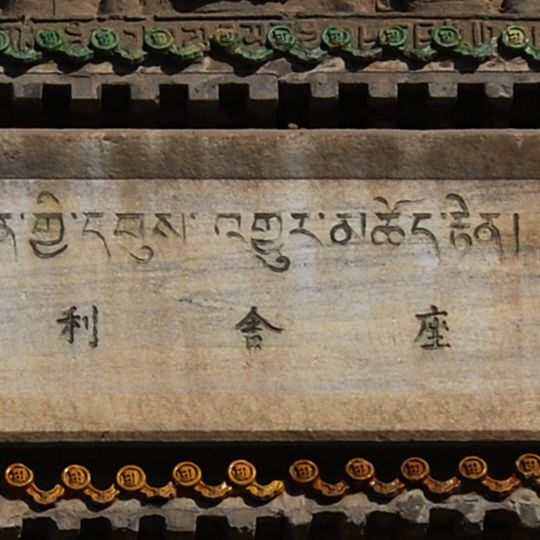 ན་གྱི་དབུས་འགྱུར་མཆོད་རྟེན།
座舍利